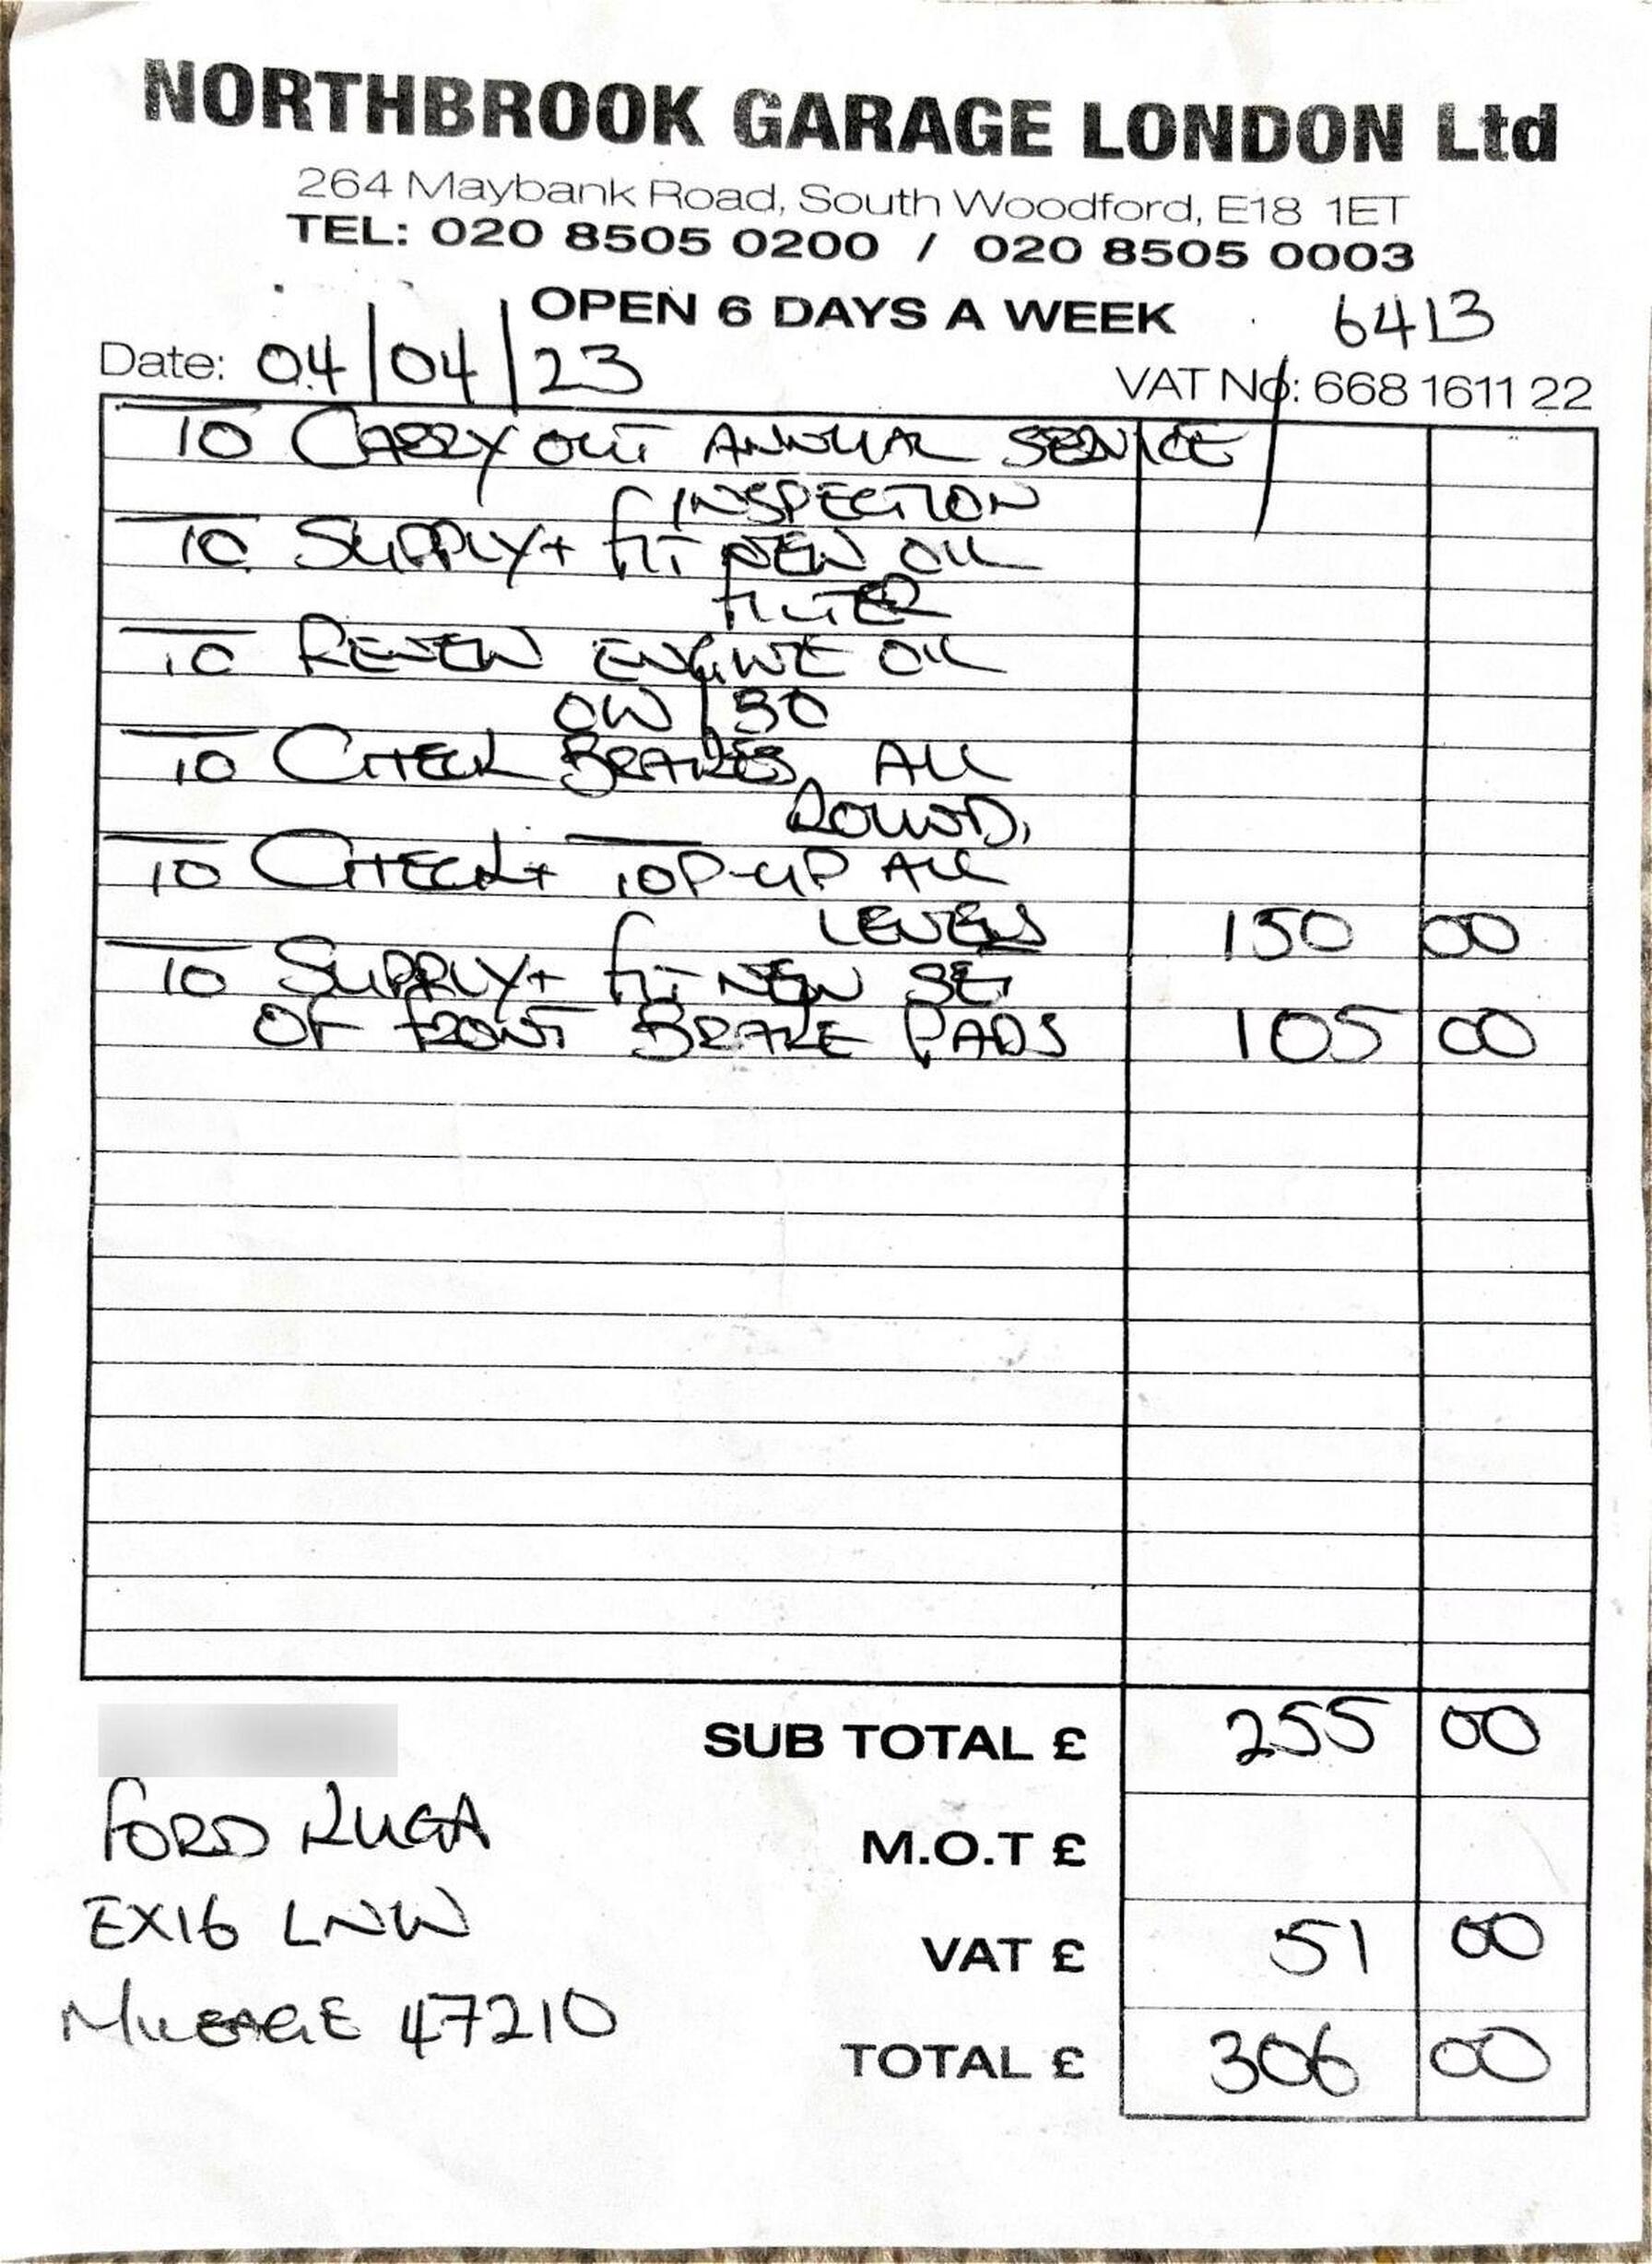 NORTHBROOK GARAGE LONDON Ltd
264 Maybank Road, South Woodford, E18 1ET
TEL: 020 8505 0200 / 020 8505 0003
OPEN 6 DAYS A WEEK 6413
Date: 04/04/23 VAT No: 668 1611 22
TO CARRY OUT ANNUAL SERVICE
INSPECTION
TO SUPPLY + FIT NEW OIL
FILTER
TO RENEW ENGINE OIL
0W/30
TO CHECK BRAKES ALL
ROUND,
TO CHECK + TOP-UP ALL
LEVELS 150 00
TO SUPPLY + FIT NEW SET
OF FRONT BRAKE PADS 105 00
SUB TOTAL £ 255 00
FORD KUGA
M.O.T £
EX16 LNW
VAT £ 51 00
MILEAGE 47210
TOTAL £ 306 00